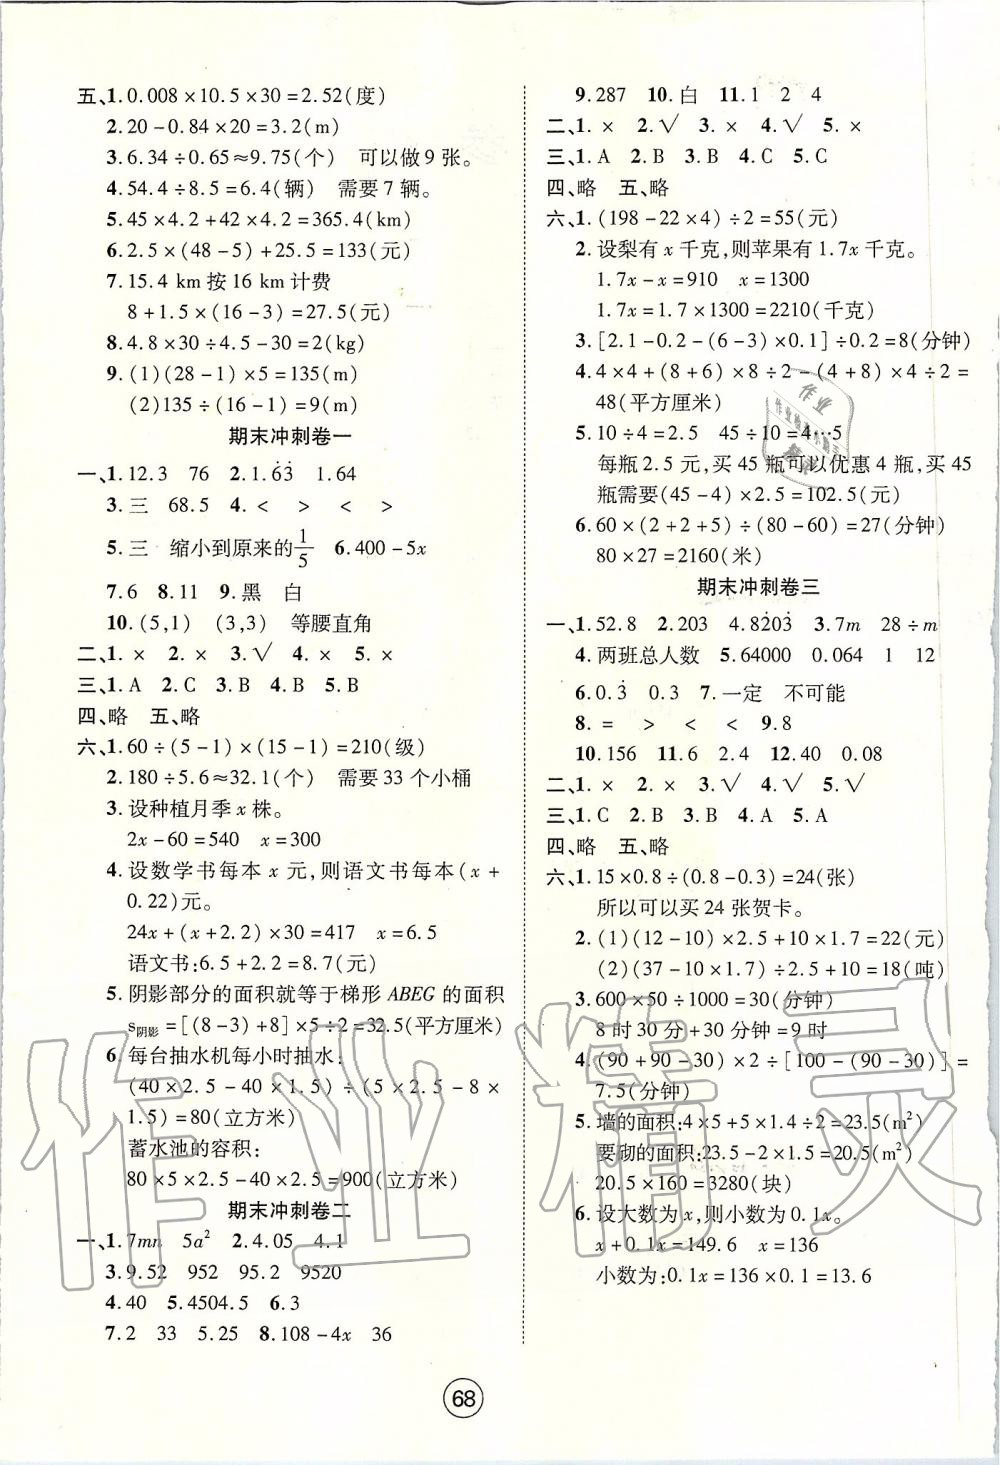 五、1.0.008×10.5×30=2.52(度)
2.20-0.84×20=3.2(m)
3.6.34÷0.65≈9.75(个) 可以做9张。
4.54.4÷8.5=6.4(辆) 需要7辆。
5.45×4.2+42×4.2=365.4(km)
6.2.5×(48-5)+25.5=133(元)
7.15.4 km按16 km计费
8+1.5×(16-3)=27.5(元)
8.4.8×30÷4.5-30=2(kg)
9.(1)(28-1)×5=135(m)
(2)135÷(16-1)=9(m)
期末冲刺卷一
一、1.12.3 76 2.1.6̇3̇ 1.64
3.三 68.5 4.< > < >
5.三 缩小到原来的1/5 6.400-5x
7.6 8.11 9.黑 白
10.(5,1) (3,3) 等腰直角
二、1.× 2.× 3.√ 4.× 5.×
三、1.A 2.C 3.B 4.B 5.B
四、略 五、略
六、1.60÷(5-1)×(15-1)=210(级)
2.180÷5.6≈32.1(个) 需要33个小桶
3.设种植月季x株。
2x-60=540 x=300
4.设数学书每本x元,则语文书每本(x+
0.22)元。
24x+(x+2.2)×30=417 x=6.5
语文书:6.5+2.2=8.7(元)
5.阴影部分的面积就等于梯形ABEG的面积
s阴影=[(8-3)+8]×5÷2=32.5(平方厘米)
6.每台抽水机每小时抽水:
(40×2.5-40×1.5)÷(5×2.5-8×
1.5)=80(立方米)
蓄水池的容积:
80×5×2.5-40×2.5=900(立方米)
期末冲刺卷二
一、1.7mn 5a² 2.4.05 4.1
3.9.52 952 95.2 9520
4.40 5.4504.5 6.3
7.2 33 5.25 8.108-4x 36
9.287 10.白 11.1 2 4
二、1.× 2.√ 3.× 4.√ 5.×
三、1.A 2.B 3.B 4.C 5.C
四、略 五、略
六、1.(198-22×4)÷2=55(元)
2.设梨有x千克,则苹果有1.7x千克。
1.7x-x=910 x=1300
1.7x=1.7×1300=2210(千克)
3.[2.1-0.2-(6-3)×0.1]÷0.2=8(分钟)
4.4×4+(8+6)×8÷2-(4+8)×4÷2=
48(平方厘米)
5.10÷4=2.5 45÷10=4…5
每瓶2.5元,买45瓶可以优惠4瓶,买45
瓶需要(45-4)×2.5=102.5(元)
6.60×(2+2+5)÷(80-60)=27(分钟)
80×27=2160(米)
期末冲刺卷三
一、1.52.8 2.203 4.82̇03̇ 3.7m 28÷m
4.两班总人数 5.64000 0.064 1 12
6.0.3̇ 0.3 7.一定 不可能
8.= > < < 9.8
10.156 11.6 2.4 12.40 0.08
二、1.× 2.× 3.√ 4.√ 5.√
三、1.C 2.B 3.B 4.A 5.A
四、略 五、略
六、1.15×0.8÷(0.8-0.3)=24(张)
所以可以买24张贺卡。
2.(1)(12-10)×2.5+10×1.7=22(元)
(2)(37-10×1.7)÷2.5+10=18(吨)
3.600×50÷1000=30(分钟)
8时30分+30分钟=9时
4.(90+90-30)×2÷[100-(90-30)]=
7.5(分钟)
5.墙的面积:4×5+5×1.4÷2=23.5(m²)
要砌的面积:23.5-2×1.5=20.5(m²)
20.5×160=3280(块)
6.设大数为x,则小数为0.1x。
x+0.1x=149.6 x=136
小数为:0.1x=136×0.1=13.6
68
作业精灵